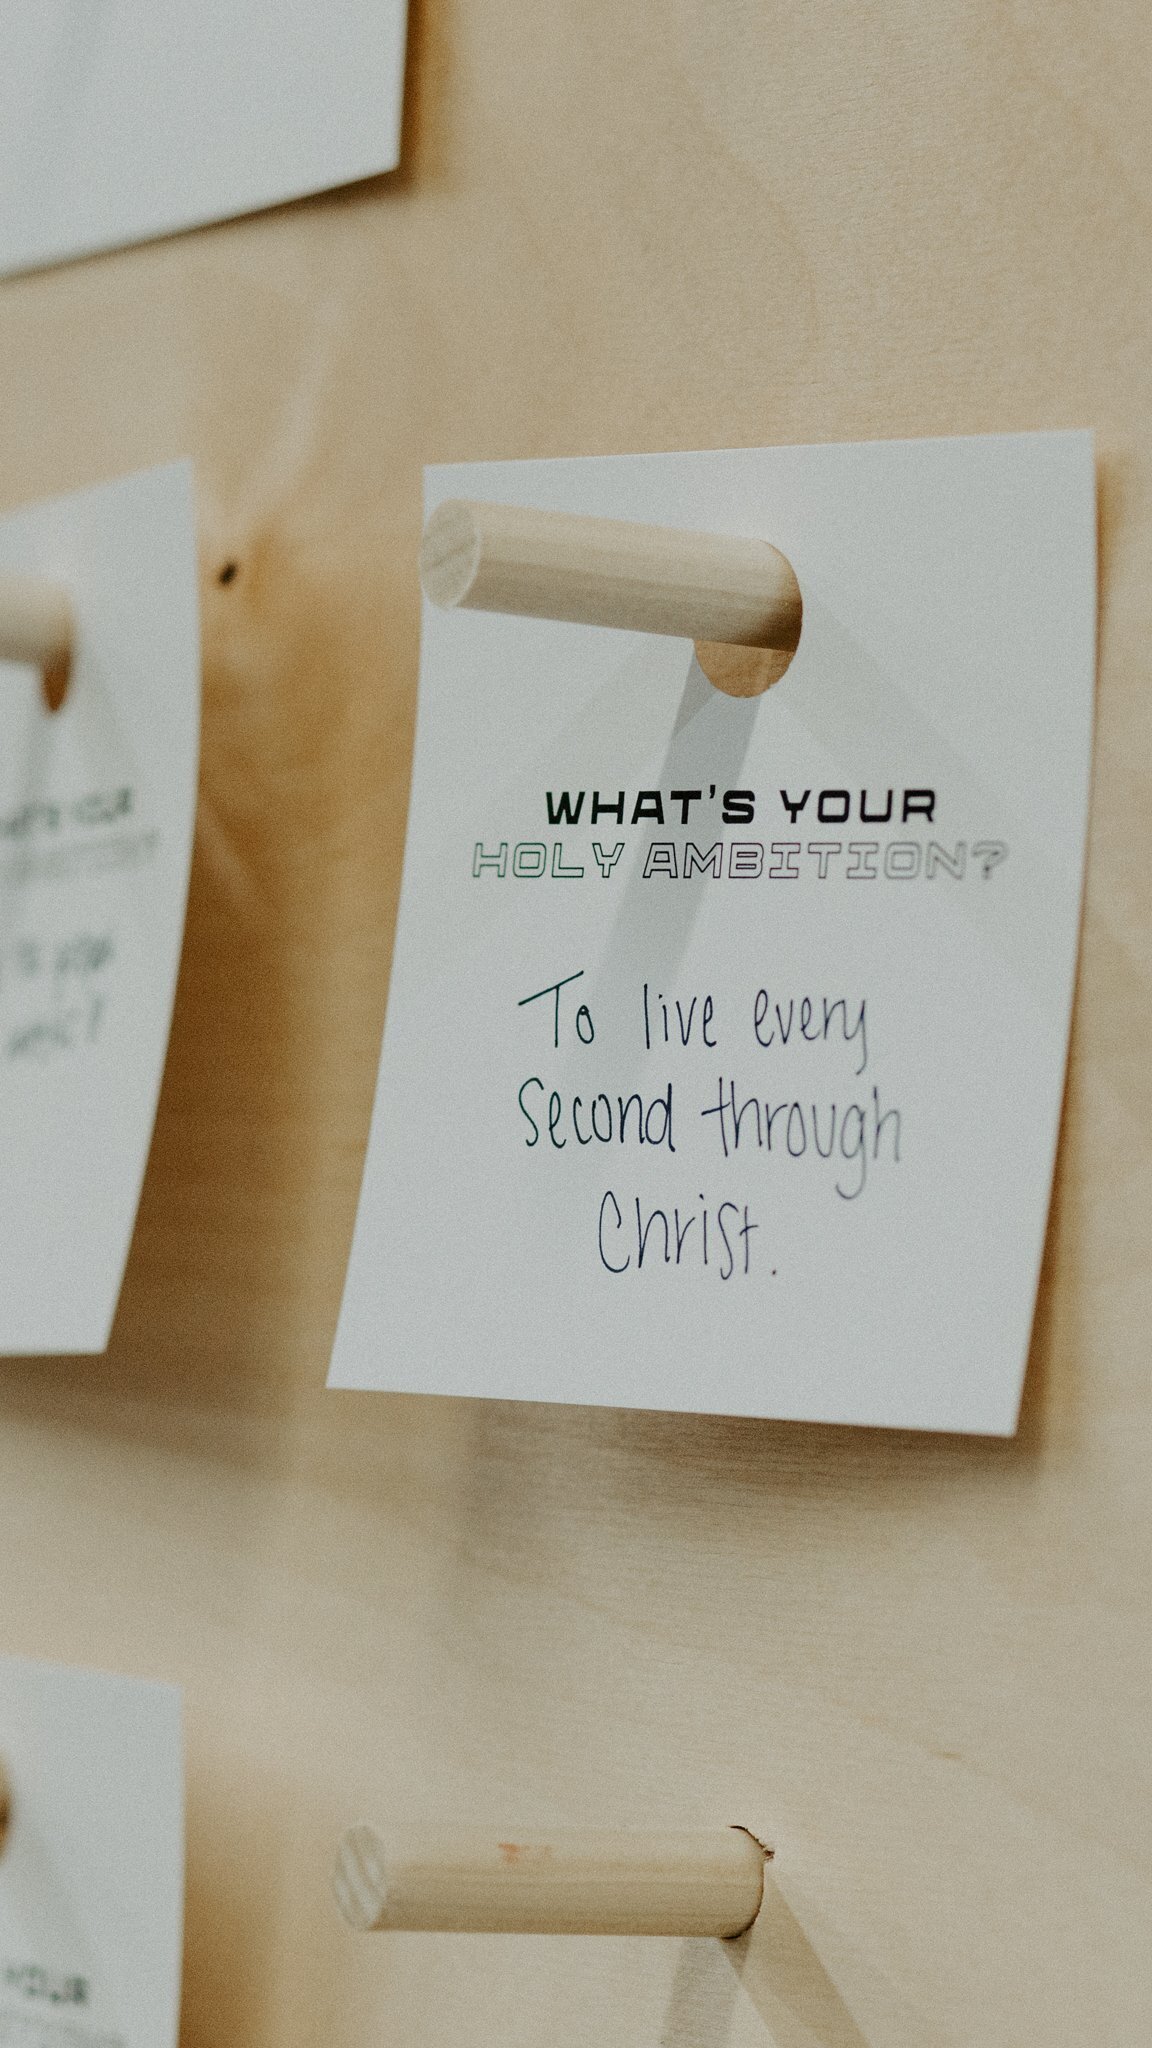 WHAT'S YOUR
HOLY AMBITION?
To live every
second through
Christ.
YOUR